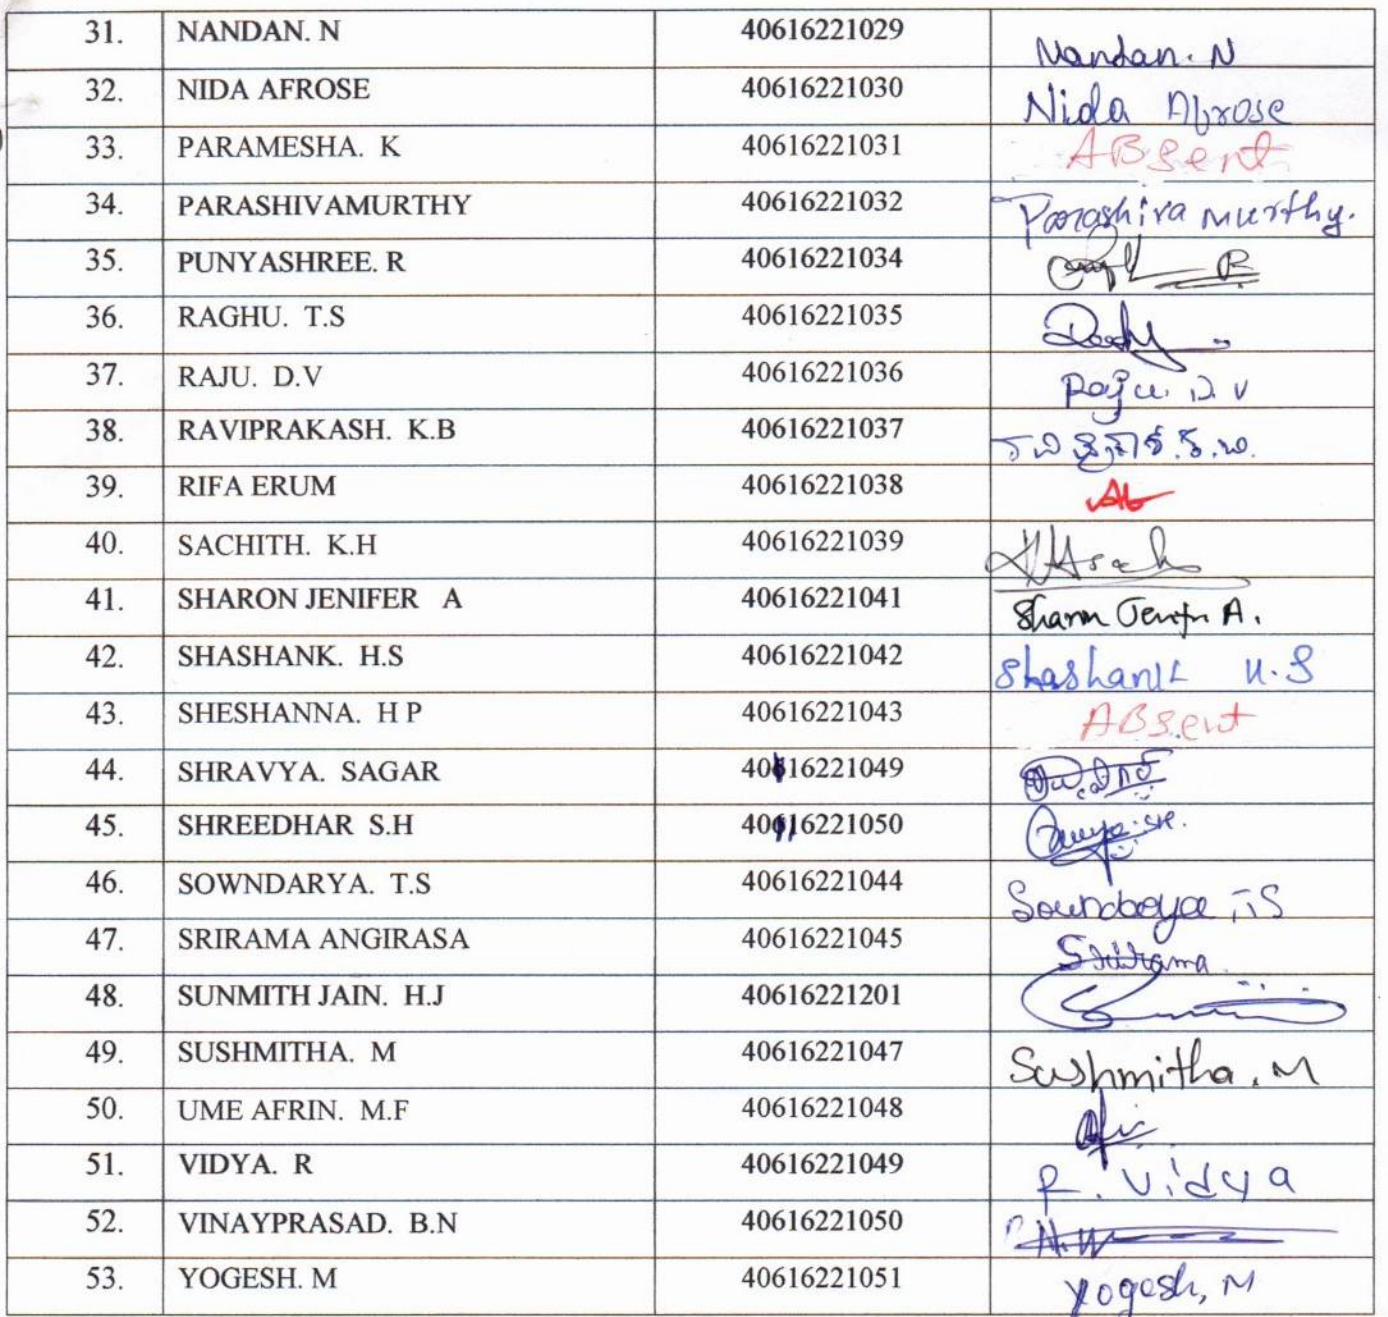 31. NANDAN. N 40616221029 Nandan. N
32. NIDA AFROSE 40616221030 Nida Afrose
33. PARAMESHA. K 40616221031 ABsent
34. PARASHIVAMURTHY 40616221032 Parashiva murthy.
35. PUNYASHREE. R 40616221034
36. RAGHU. T.S 40616221035
37. RAJU. D.V 40616221036 Raju. D. V
38. RAVIPRAKASH. K.B 40616221037 ರವಿಪ್ರಕಾಶ್.ಕೆ.ಬಿ.
39. RIFA ERUM 40616221038 Ab
40. SACHITH. K.H 40616221039
41. SHARON JENIFER A 40616221041 Sharon Jenifer A.
42. SHASHANK. H.S 40616221042 Shashank H.S
43. SHESHANNA. H P 40616221043 ABsent
44. SHRAVYA. SAGAR 40616221049
45. SHREEDHAR S.H 40616221050
46. SOWNDARYA. T.S 40616221044 Soundarya T S
47. SRIRAMA ANGIRASA 40616221045 Srirama
48. SUNMITH JAIN. H.J 40616221201
49. SUSHMITHA. M 40616221047 Sushmitha. M
50. UME AFRIN. M.F 40616221048
51. VIDYA. R 40616221049 R. Vidya
52. VINAYPRASAD. B.N 40616221050
53. YOGESH. M 40616221051 Yogesh, M